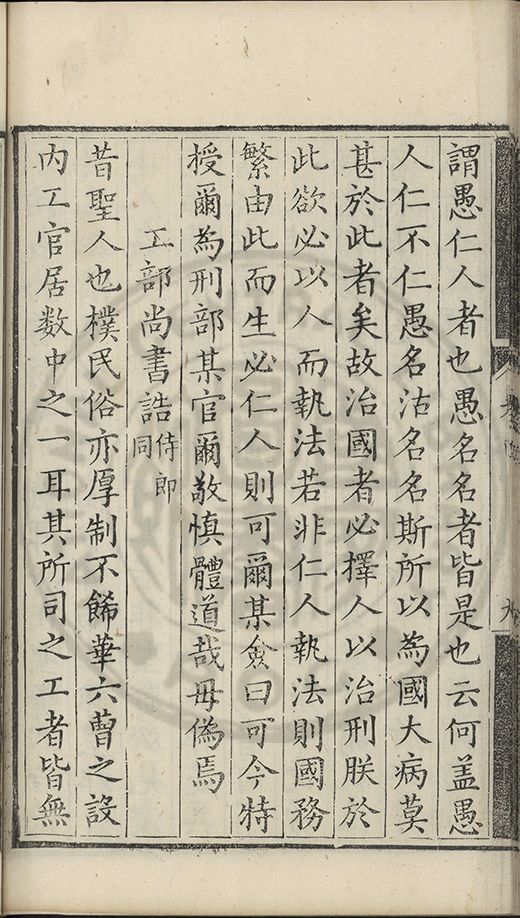 謂愚仁人者也愚名名者皆是也云何盖愚
人仁不仁愚名沽名名斯所以為國大病莫
甚於此者矣故治國者必擇人以治刑朕於
此欲必以人而執法若非仁人執法則國務
繁由此而生必仁人則可爾某僉曰可今特
授爾為刑部某官爾敬慎體道哉毋偽焉
工部尚書誥侍郎同
昔聖人也樸民俗亦厚制不餙華六曹之設
内工官居数中之一耳其所司之工者皆無